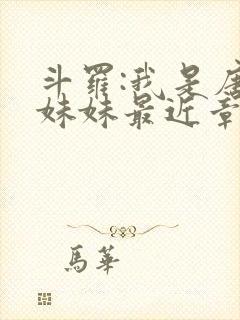 斗羅:我是唐
妹妹最近章
馬華